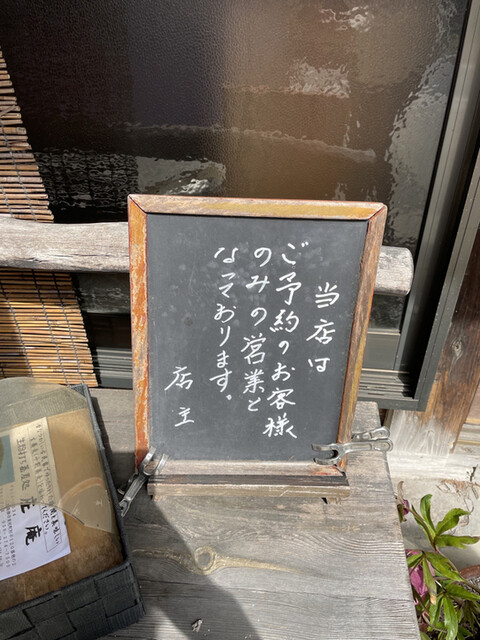 当店は
ご予約のお客様
のみの営業と
なっております。
店主